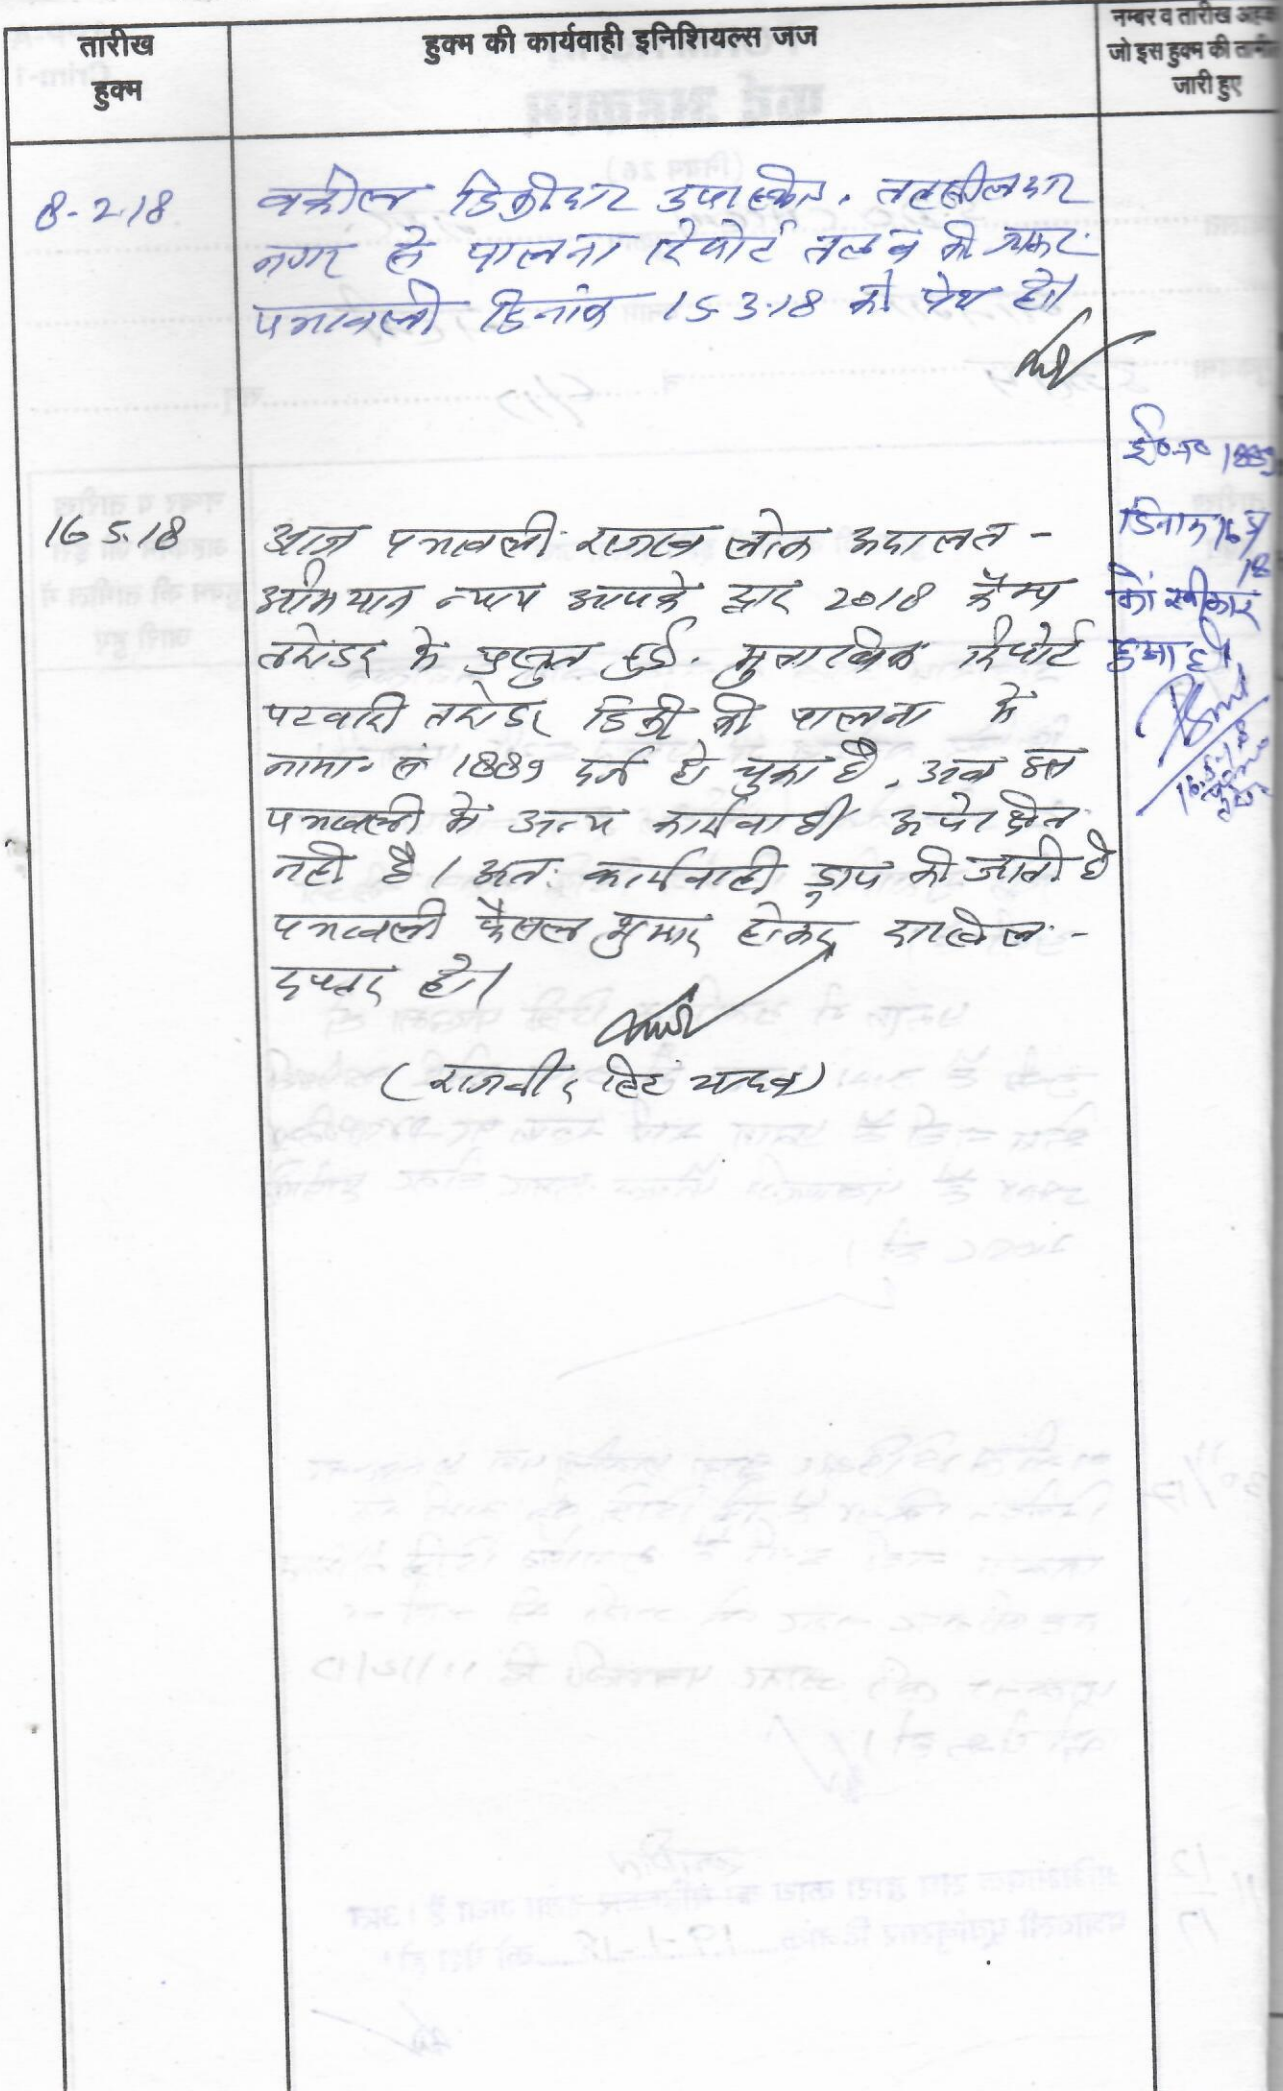 तारीख
हुक्म
हुक्म की कार्यवाही इनिशियल्स जज
नम्बर व तारीख
जो इस हुक्म की
जारी हुए
8-2-18
वकील डिक्रीदार उपस्थित. तहसीलदार
नगर से पालना रिपोर्ट तलब की जाकर
पत्रावली दिनांक 15-3-18 को पेश हो।
16-5-18
आज पत्रावली राजस्व लोक अदालत -
अभियान न्याय आपके द्वार 2018 कैम्प
के प्रस्तुत हुई. मुताबिक रिपोर्ट
पटवारी डिक्री की पालना में
नामा. सं 1889 दर्ज हो चुका है. अब इस
पत्रावली में अन्य कार्यवाही अपेक्षित
नही है। अतः कार्यवाही ड्राप की जाती है
पत्रावली फैसल शुमार होकर दाखिल -
दफ्तर हो।
(राजवीर सिंह यादव)
दिनांक 16
18
को स्वीकार
हुआ है।
16-5-18